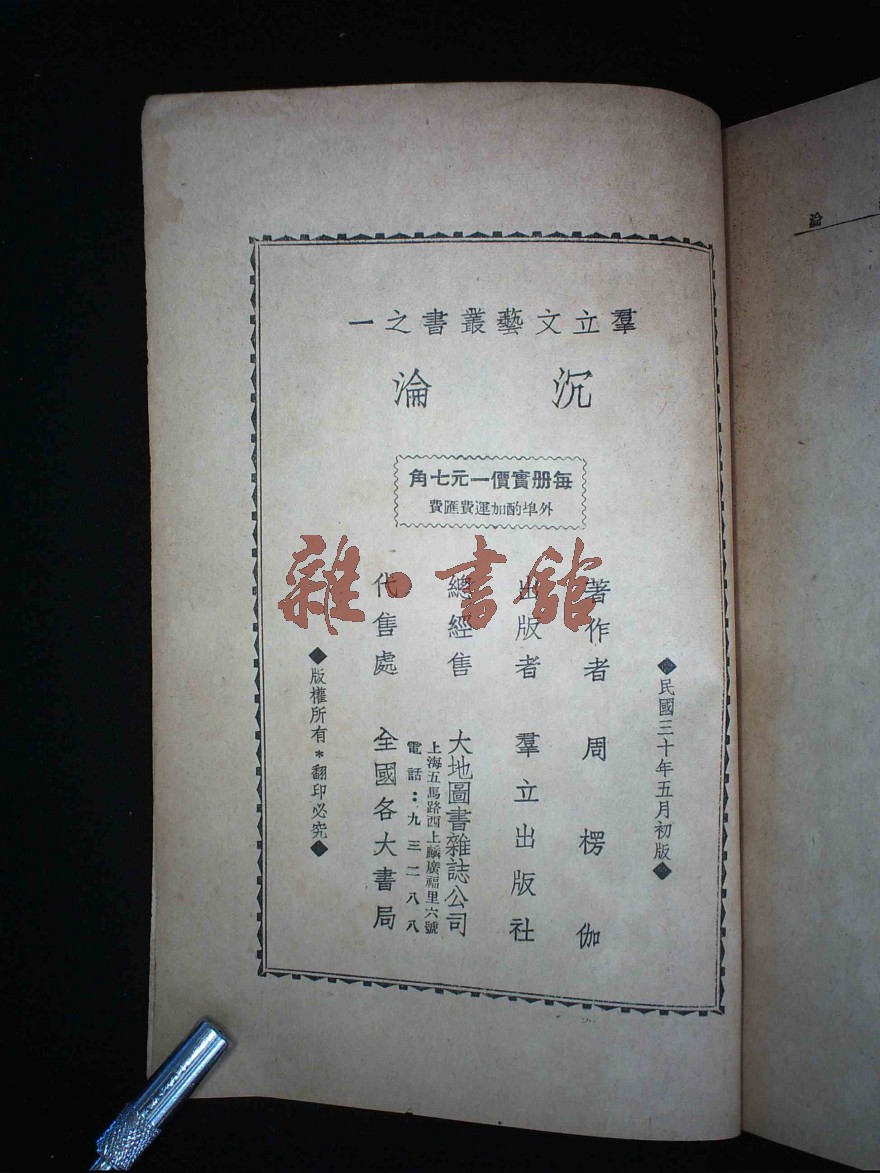 羣立文藝叢書之一
沉淪
每册實價一元七角
外埠酌加運費匯費
◆民國三十年五月初版◆
著作者 周楞伽
出版者 羣立出版社
總經售 大地圖書雜誌公司
上海五馬路西上麟廣福里六號
電話：九三二八八
代售處 全國各大書局
◆版權所有*翻印必究◆
雜·書館
淪